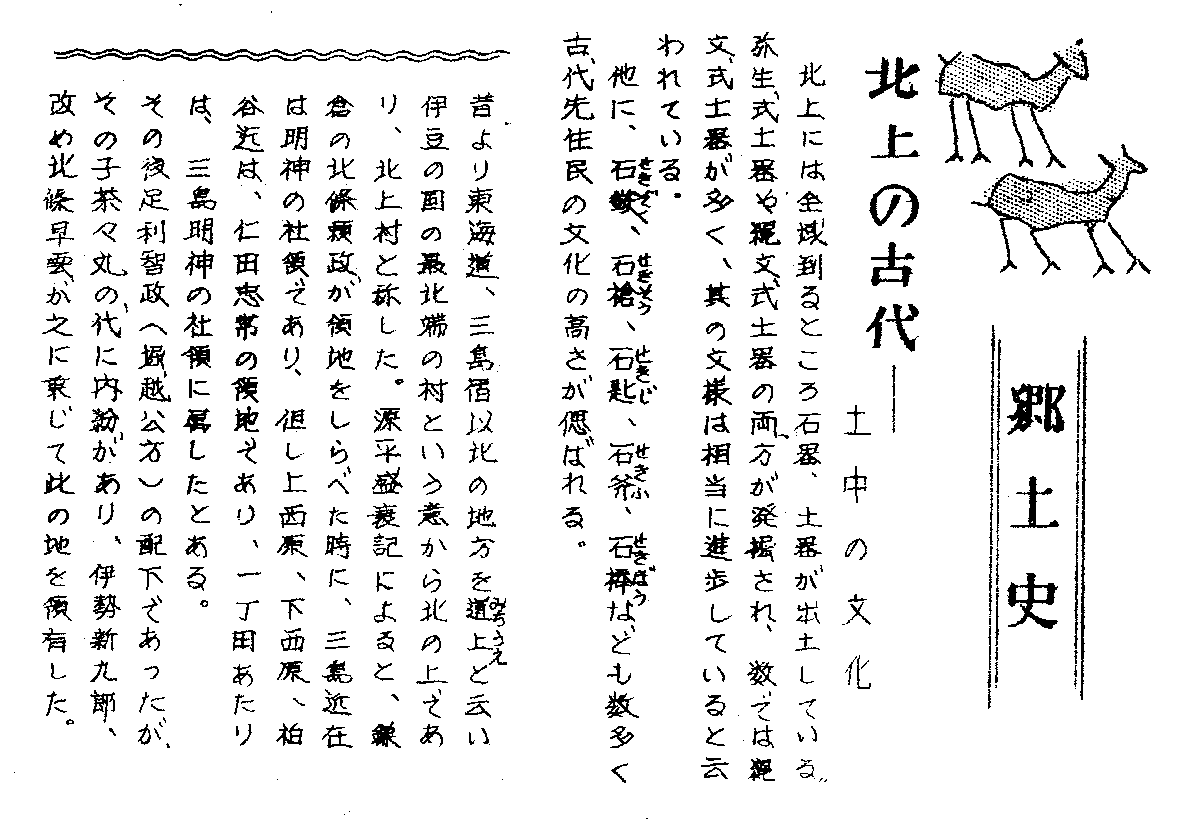 郷土史
北上の古代――
土中の文化
北上には全域到るところ石器、土器が出土している。
弥生式土器や縄文式土器の両方が発掘され、数では縄
文式土器が多く、其の文様は相当に進歩していると云
われている。
他に、石鏃、石槍、石匙、石斧、石棒なども数多く
せきぞく せきそう せきじ せきふ せきぼう
古代先住民の文化の高さが偲ばれる。
昔より東海道、三島宿以北の地方を道上と云い
みちうえ
伊豆の国の最北端の村という意から北の上であ
り、北上村と称した。源平盛衰記によると、鎌
倉の北條頼政が領地をしらべた時に、三島近在
は明神の社領であり、但し上西原、下西原、柏
谷迄は、仁田忠常の領地であり、一丁田あたり
は、三島明神の社領に属したとある。
その後足利智政(堀越公方)の配下であったが、
その子茶々丸の代に内紛があり、伊勢新九郎、
改め北條早雲が之に乗じて此の地を領有した。